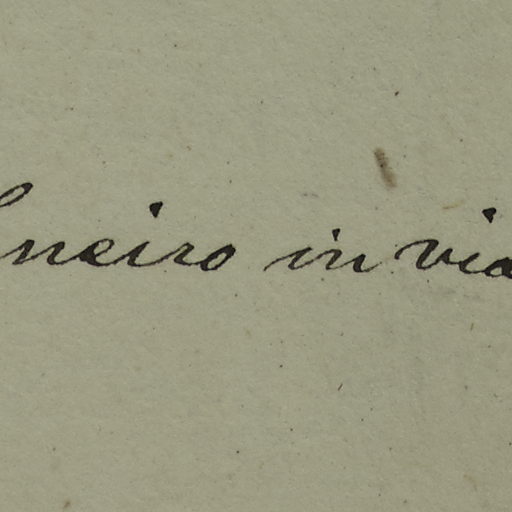 neiro in via